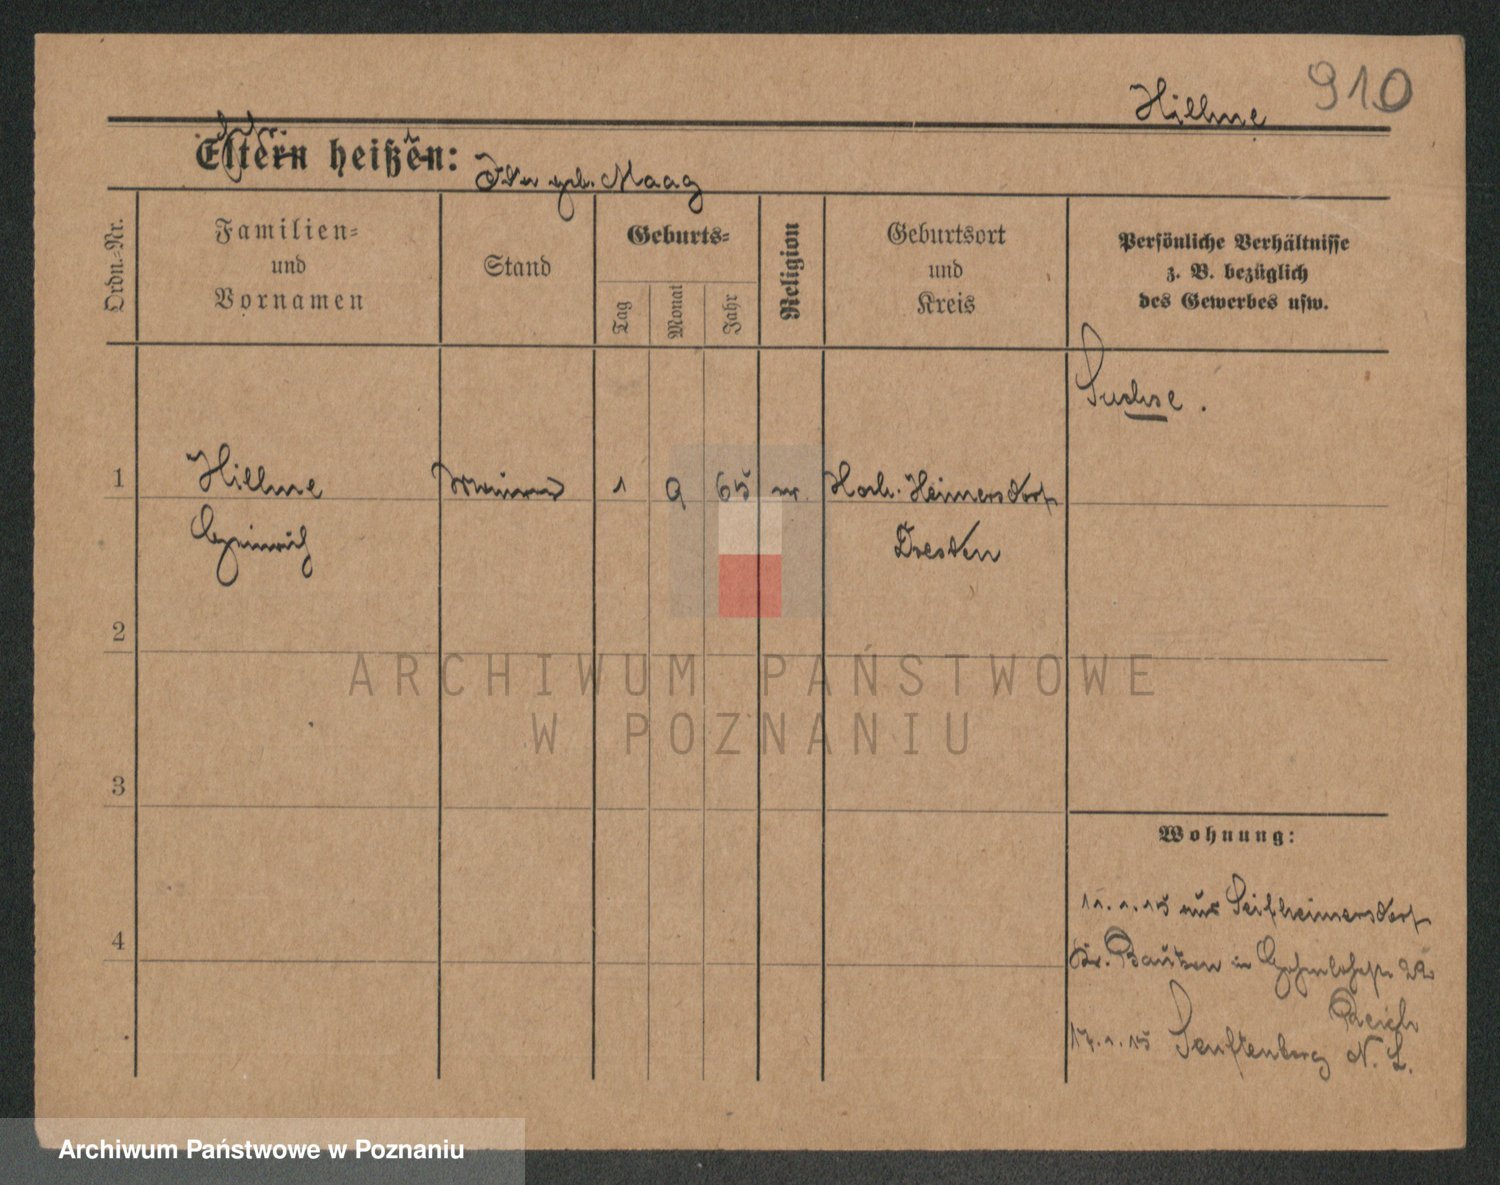 910
Hillme
Eltern heißen:
geb. Maag
Ordn.-Nr.
Familien-
und
Vornamen
Stand
Geburts-
Tag
Monat
Jahr
Religion
Geburtsort
und
Kreis
Persönliche Verhältnisse
z. B. bezüglich
des Gewerbes usw.
Sachse.
1
Hillme
1
9
65
Heimersdorf
Heinrich
Dresden
2
ARCHIWUM PAŃSTWOWE
W POZNANIU
3
Wohnung:
11.1.15 aus Seifheimersdorf
4
Kr. Bautzen in 22
Reich
17.1.15 Senftenberg N. L.
Archiwum Państwowe w Poznaniu